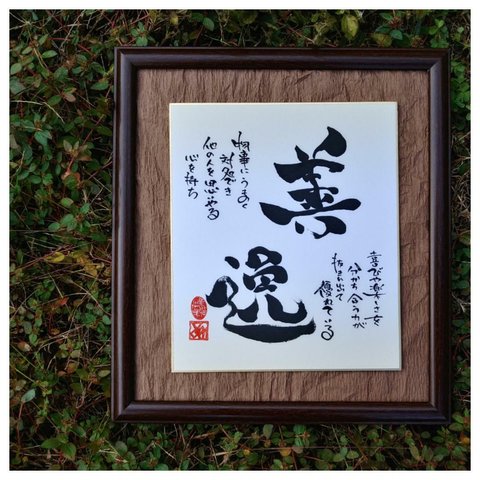 善逸
物事にうまく
対処でき
他の人を思いやる
心を持ち
喜びや楽しさを
分かち合う力が
抜きん出て
優れている